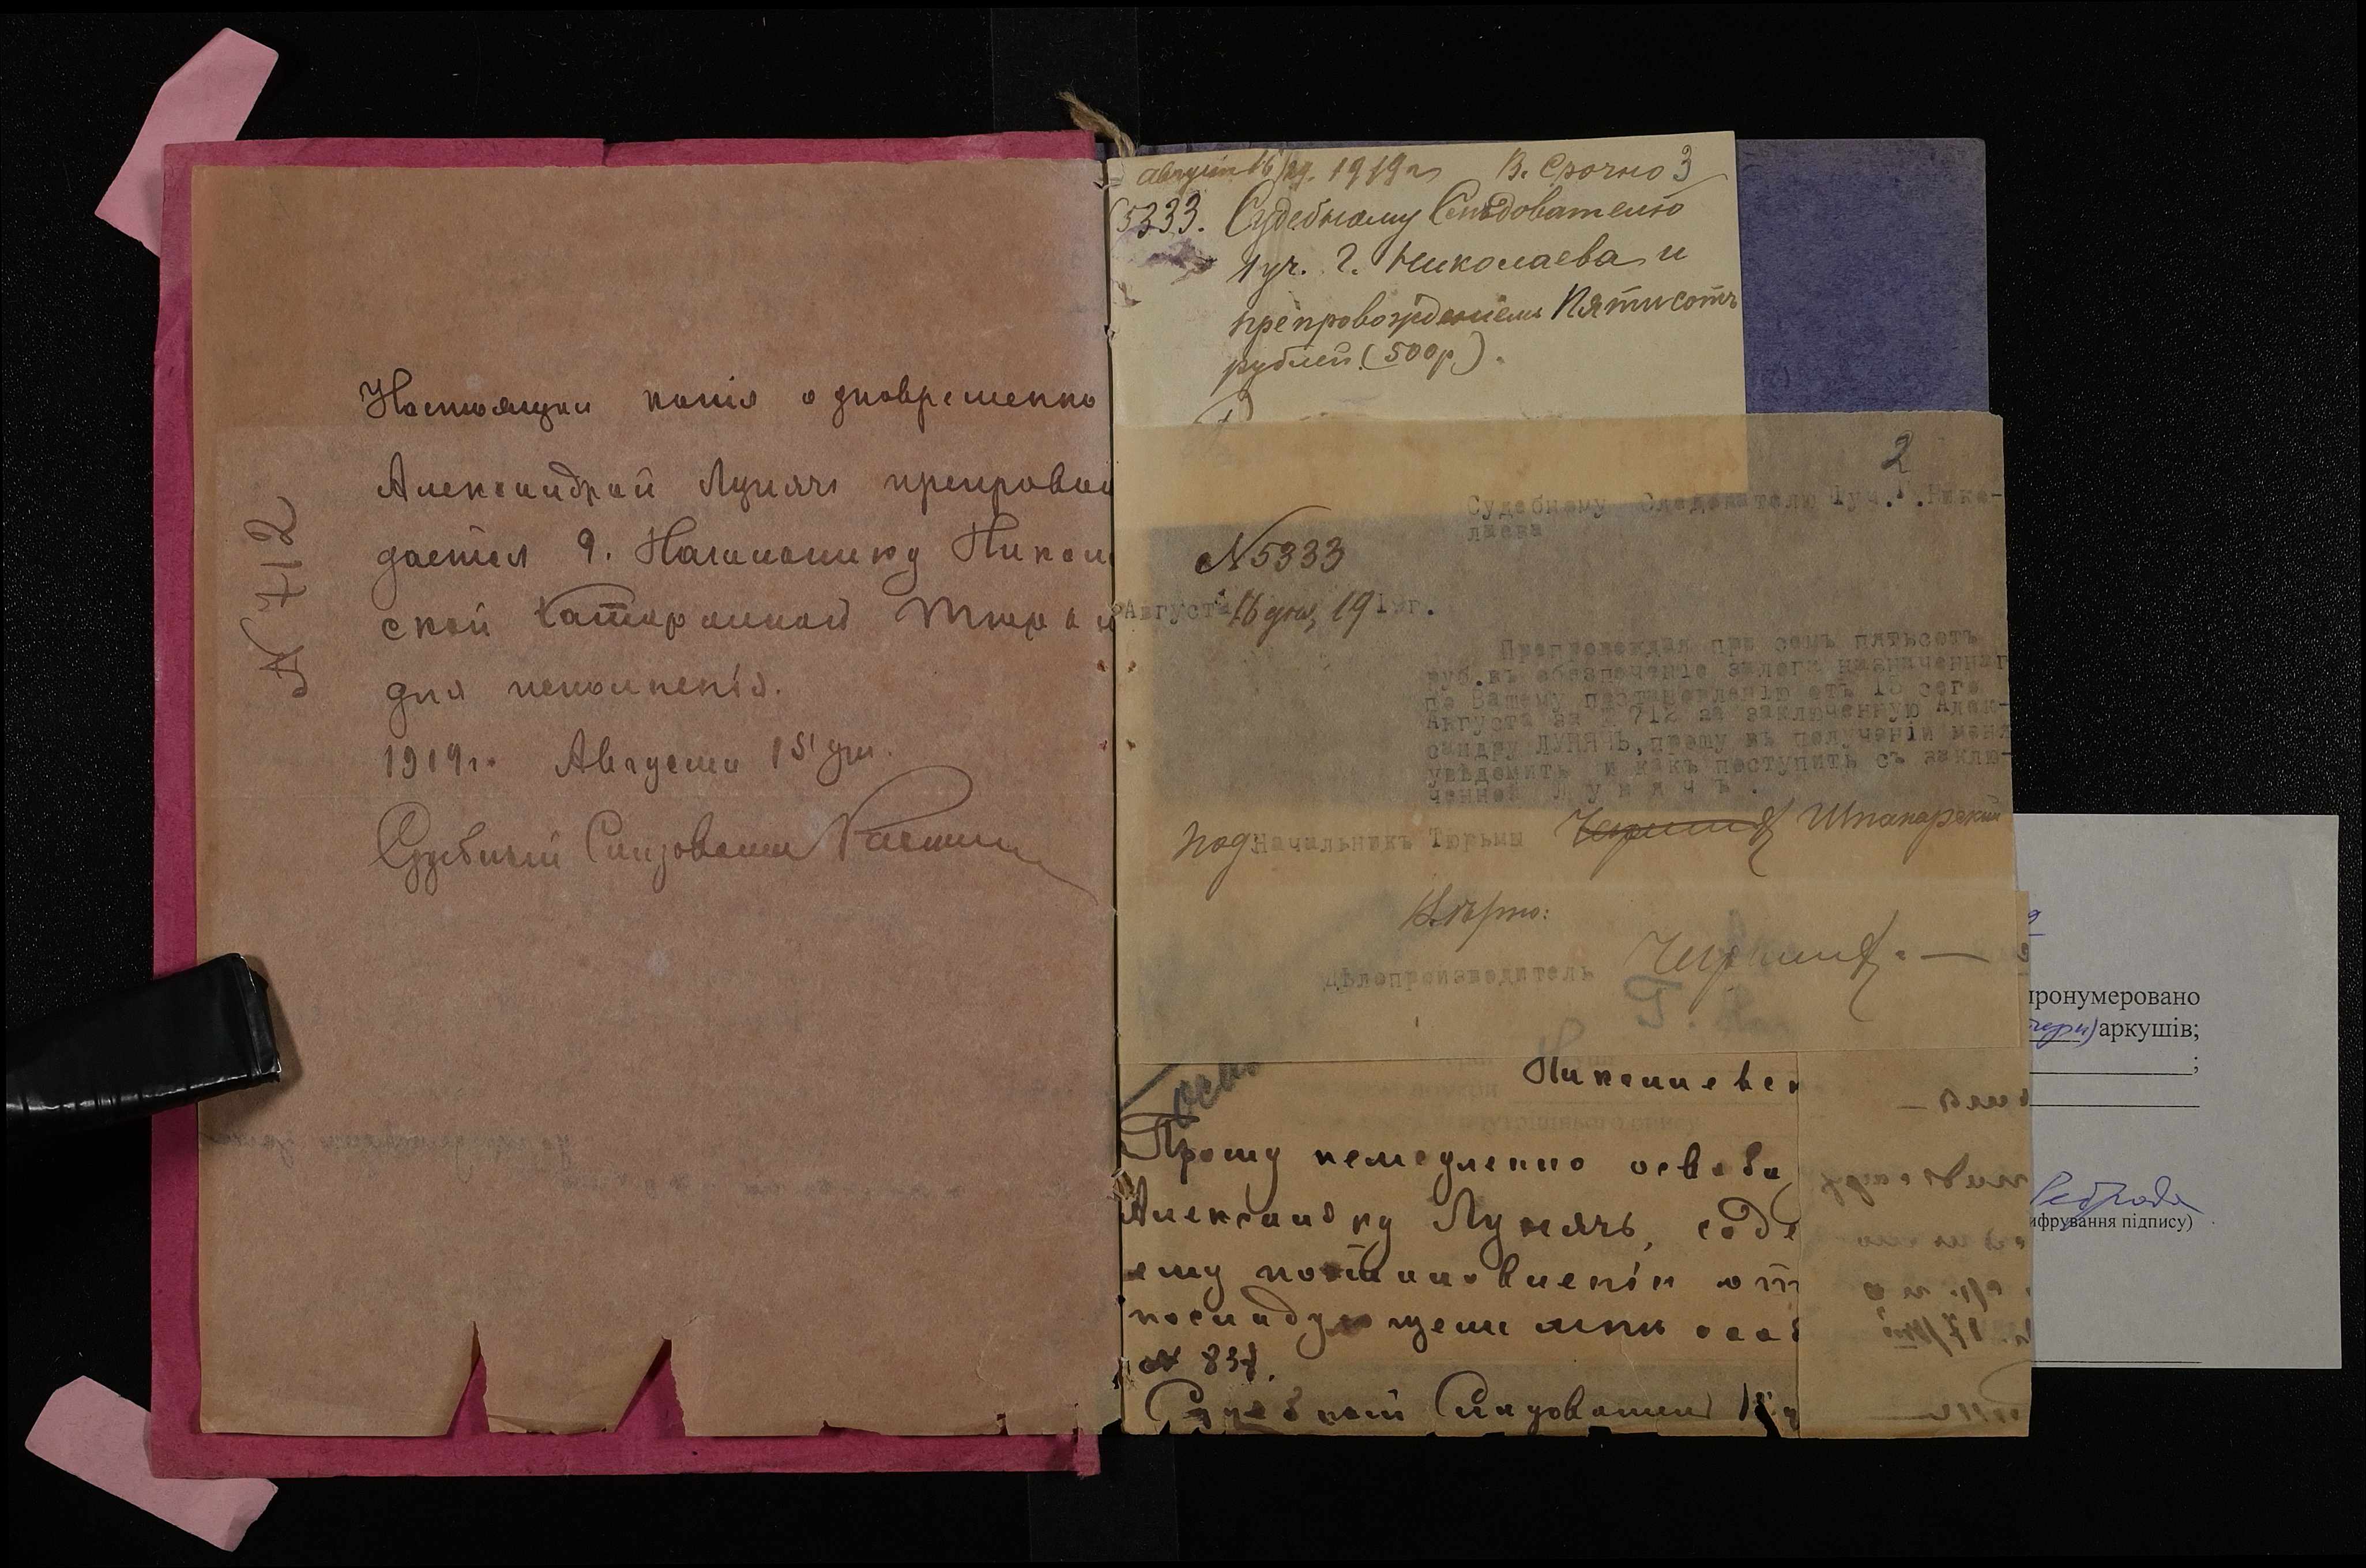 Настоящая копія одновременно
Александрой Лунячъ препровож
дается Г. Начальнику Никола
ской Каторжной Тюрь
для исполненія.
1919 г. Августа 15 дня.
Судебный Следователь
N 712
Августа 16 дн. 1919 г. В. Срочно 3
5333. Судебному Следователю
1 уч. г. Николаева и
препровожденіемъ Пятисотъ
рублей (500 р).
2
Судебному Следователю 1 уч. Г. Нико-
лаева
N 5333
Августа 16 дня, 1919г.
Препровождая при семъ пятьсотъ
руб. въ обезпеченіе залога назначеннаг
по Вашему постановленію отъ 15 сего
Августа за № 712 за заключенную Алек-
сандру ЛУНЯЧЪ, прошу въ полученіи меня
уведомить и какъ поступить съ заклю-
ченной Лунячъ.
под Начальникъ Тюрьмы Шпанарский
Вѣрно:
Дѣлопроизводитель
Николаевск
Прошу немедленно освобо
Александру Лунячъ, соде
ему постановленію от
N 837.
Судебный Следователь
пронумеровано
аркушів;
;
ифрування підпису)